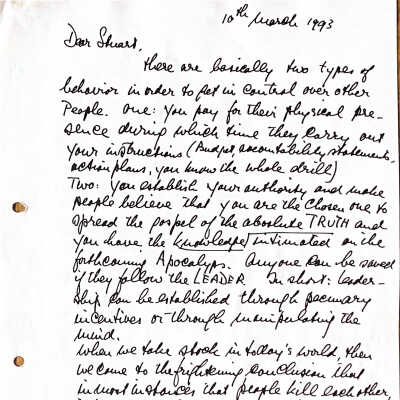 10th March 1993
Dear Stuart,
there are basically two types of
behavior in order to get in control over other
People. One: you pay for their physical pre-
sence during which time they carry out
your instructions (Budget, accountability statements,
action plans, you know the whole drill)
Two: you establish your authority and make
people believe that you are the Chosen one to
spread the gospel of the absolute TRUTH and
you have the knowledge/intimated on the
forthcoming Apocalyps. Anyone can be saved
if they follow the LEADER In short: Leader-
ship can be established through pecunary
incentives or through manipulating the
mind.
When we take stock in today's world, then
we come to the frightening conclusion that
in most instances that people kill each other,